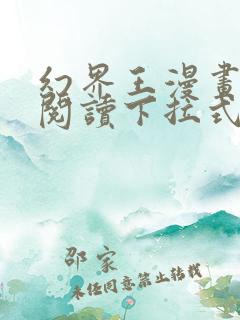 幻界王漫畫
閱讀下拉式
邵家
未經同意禁止轉載